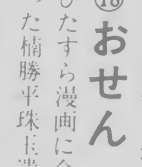 ⑯おせん
ひたすら漫画に
った楠勝平珠玉